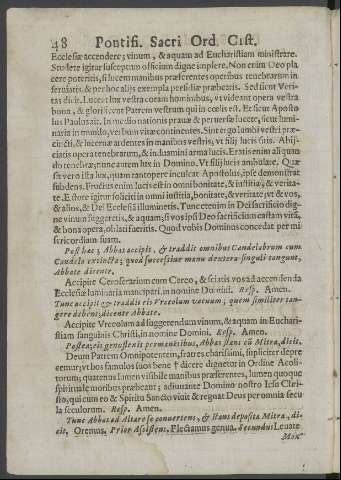 48 Pontifi. Sacri Ord. Cist.
Ecclesiæ accendere; vinum, & aquam ad Eucharistiam ministrare.
Studete igitur susceptum officium digne implere. Non enim Deo pla
cere poteritis, si lucem manibus præferentes operibus tenebrarum in
serviatis, & per hoc alijs exempla perfidiæ præbeatis. Sed sicut Veri-
tas dicit. Luceat lux vestra coram hominibus, vt videant opera vestra
bona, & glorificent Patrem vestrum qui in cœlis est. Et sicut Aposto
lus Paulus ait. In medio nationis prauæ & peruersæ lucete, sicut lumi-
naria in mundo, verbum vitæ continentes. Sint ergo lumbi vestri præ-
cincti, & lucernæ ardentes in manibus vestris, vt filij lucis sitis. Abij-
ciatis opera tenebrarum, & induamini arma lucis. Eratis enim aliquan
do tenebræ; nunc autem lux in Domino. Vt filij lucis ambulate. Quæ
sit vero ista lux, quam tantopere inculcat Apostolus, ipse demonstrat
subdens. Fructus enim lucis est in omni bonitate, & iustitia, & verita-
te. Estote igitur solicititi in omni iustitia, bonitate, & veritate; vt & vos,
& alios, & Dei Ecclesiā illuminetis. Tunc etenim in Dei sacrificio dig-
ne vinum suggeretis, & aquam; si vos ipsi Deo sacrificium castam vitā,
& bona opera, oblati fueritis. Quod vobis Dominus concedat per mi
sericordiam suam.
Post hæc; Abbas accipit, & traddit omnibus Candelabrum cum
Candela extincta; quod successiue manu dextera singuli tangunt,
Abbate dicente.
Accipite Ceroferarium cum Cereo, & sciatis vos ad accendenda
Ecclesiæ luminaria mancipari, in nomine Domini. Resp. Amen.
Tunc accipit & traddit eis Vrceolum vacuum; quem similiter tan-
gere debent; dicente Abbate.
Accipite Vrceolum ad suggerendum vinum, & aquam in Euchari-
stiam sanguinis Christi, in nomine Domini. Resp. Amen.
Postea; eis genuflexis permanentibus, Abbas stans cū Mitra, dicit.
Deum Patrem Omnipotentem, fratres charissimi, supliciter depre
cemur; vt hos famulos suos bene † dicere dignetur in Ordine Acoli-
torum; quatenus lumen visibile manibus præferentes, lumen quoque
spirituale moribus præbeant; adiuuante Domino nostro Iesu Chri-
sto, qui cum eo & Spiritu Sancto viuit & regnat Deus per omnia secu
la seculorum. Resp. Amen.
Tunc Abbas ad Altare se conuertens, & stans deposita Mitra, di-
cit, Oremus. Prior Assistens, Flectamus genua. Secundus Leuate
Mox